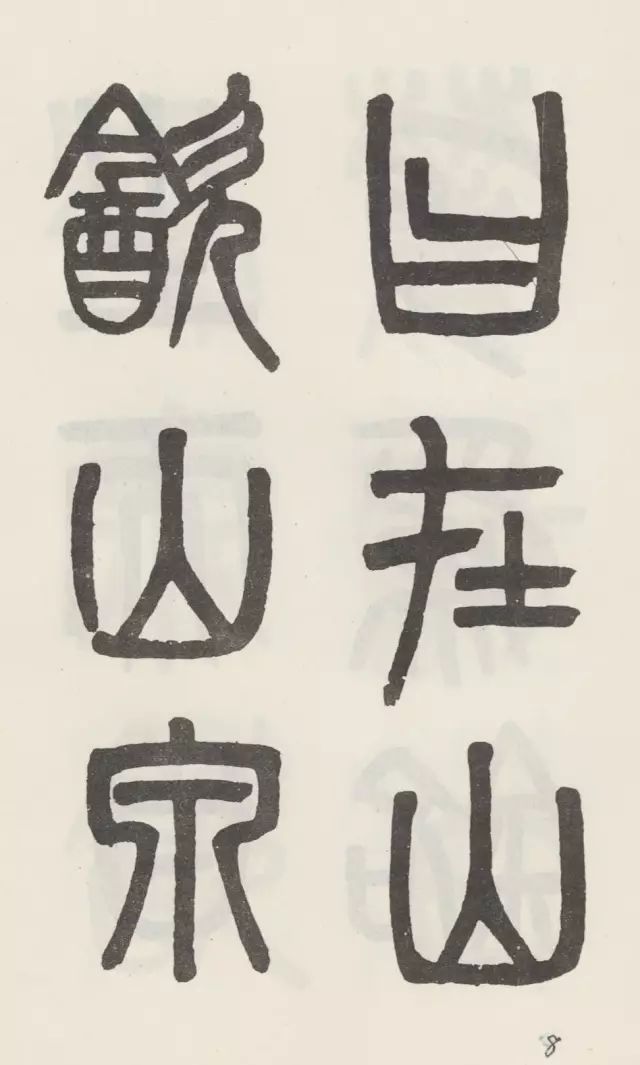 曰在山
飲山泉
8